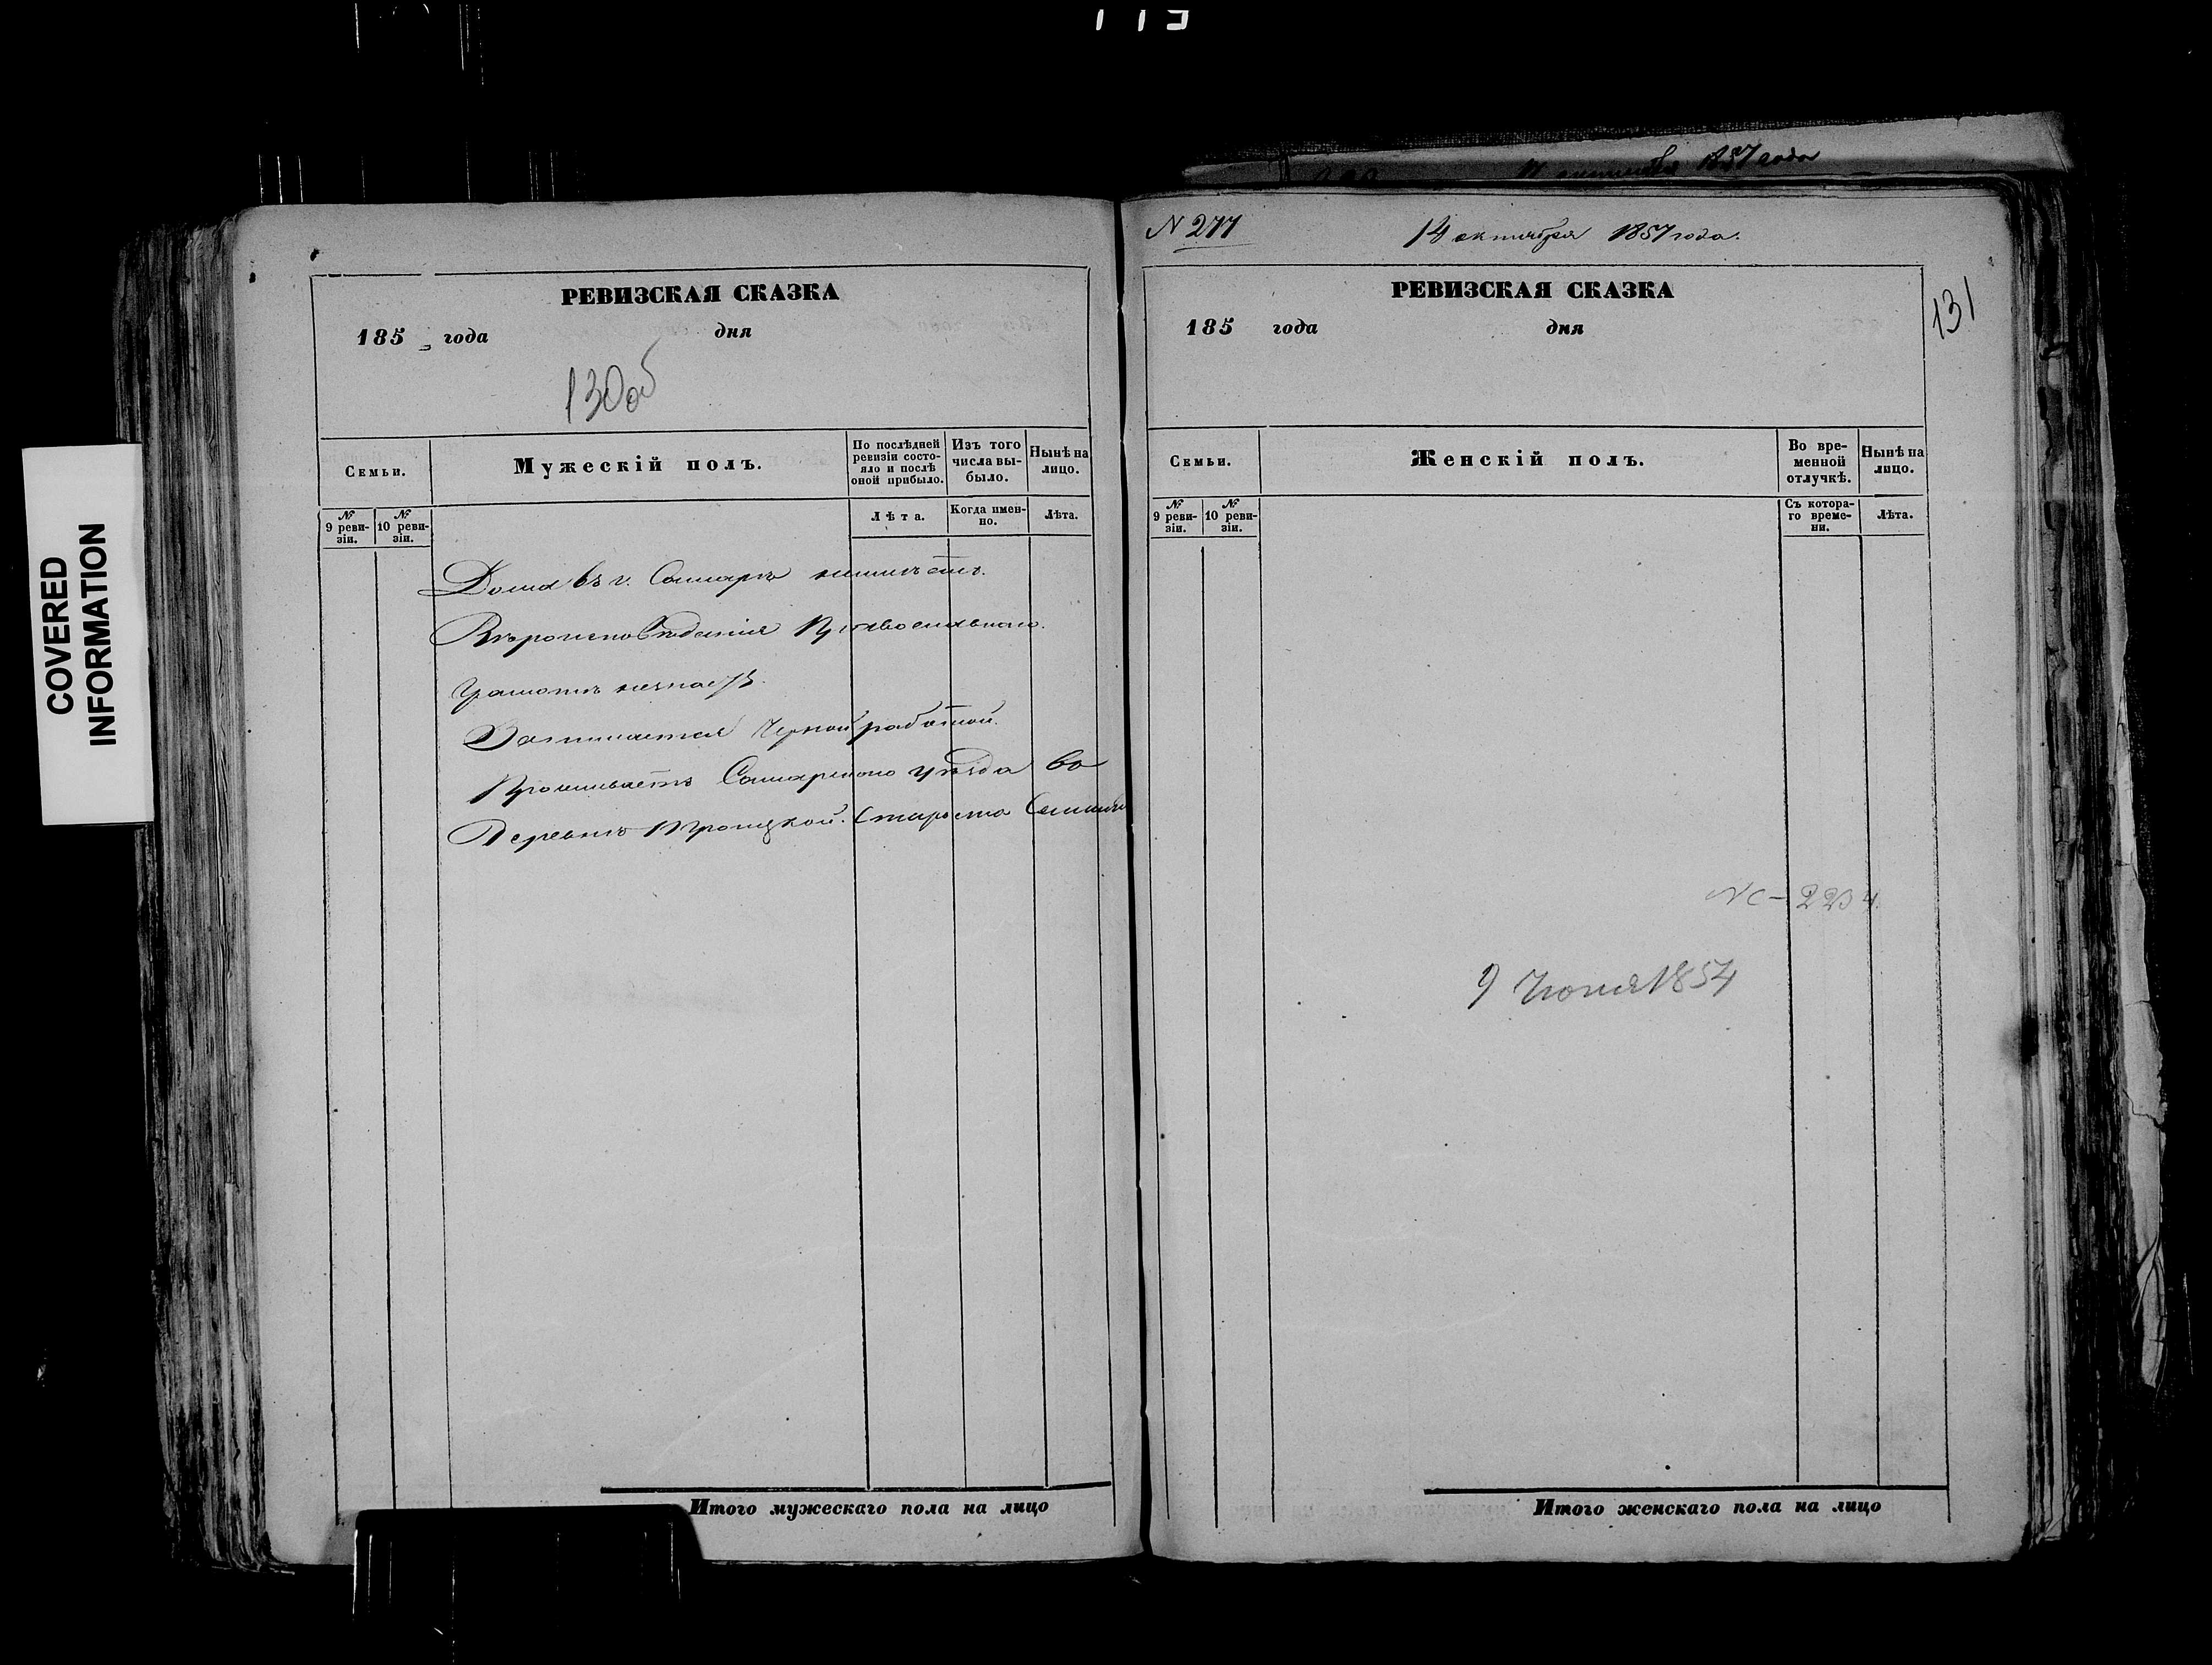 COVERED
INFORMATION
РЕВИЗСКАЯ СКАЗКА
185 года дня
130об
Семьи.
Мужескій полъ.
По послѣдней
ревизіи состо-
яло и послѣ
оной прибыло.
Изъ того
числа вы-
было.
Нынѣ на
лицо.
№
9 реви-
зіи.
№
10 реви-
зіи.
Лѣта.
Когда имен-
но.
Лѣта.
Дома въ г. Самарѣ неимѣетъ.
Вѣроисповѣданія Православнаго.
Грамотѣ незнаетъ.
Занимается Черной работой.
Проживаетъ Самарскаго уѣзда во
Деревнѣ Троицкой. Староста
Итого мужескаго пола на лицо
N 277
14 октября 1857 года.
РЕВИЗСКАЯ СКАЗКА
131
185 года дня
Семьи.
Женскій полъ.
Во вре-
менной
отлучкѣ.
Нынѣ на
лицо.
№
9 реви-
зіи.
№
10 реви-
зіи.
Съ котора-
го време-
ни.
Лѣта.
9 Июня 1854
Итого женскаго пола на лицо
1857 года